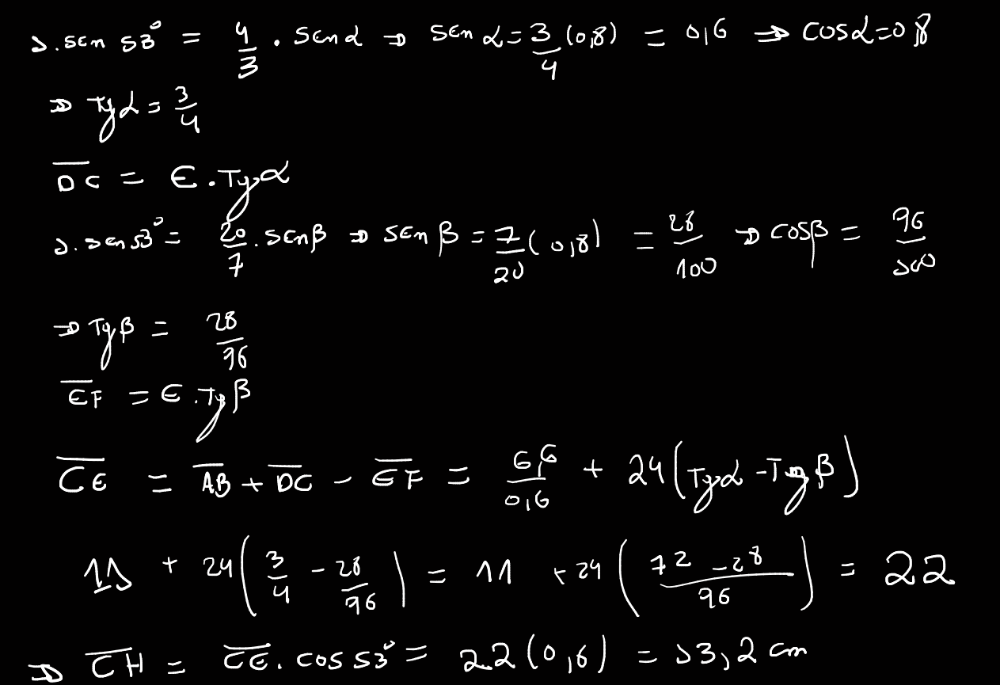 1.sen 53° = 4/3 . sen α ⇒ sen α = 3/4 (0,8) = 0,6 ⇒ cos α = 0,8
⇒ Tg α = 3/4
D̅C̅ = e.Tg α
1.sen 53° = 20/7 . sen β ⇒ sen β = 7/20 (0,8) = 28/100 ⇒ cos β = 96/100
⇒ Tg β = 28/96
E̅F̅ = e.Tg β
C̅E̅ = A̅B̅ + D̅C̅ - E̅F̅ = 6,6/0,6 + 24(Tg α - Tg β)
11 + 24(3/4 - 28/96) = 11 + 24(72 - 28/96) = 22
⇒ C̅H̅ = C̅E̅. cos 53° = 22(0,6) = 13,2 cm